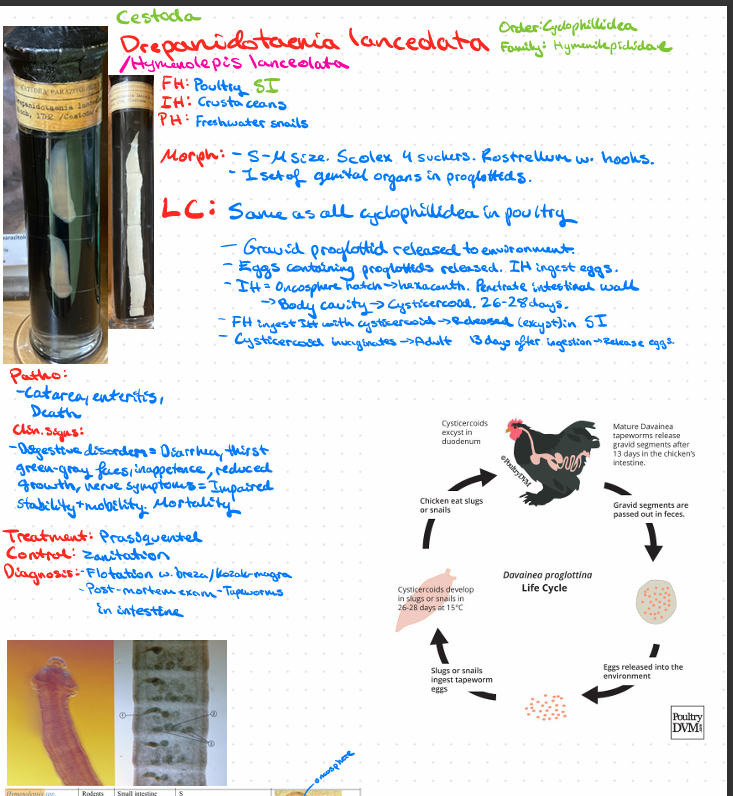 Cestoda
Drepanidotaenia lanceolata
/Hymenolepis lanceolata
Order: Cyclophillidea
Family: Hymenilepididae
FH: Poultry SI
IH: Crustaceans
PH: Freshwater snails
Morph: - S-M size. Scolex 4 suckers. Rostrellum w. hooks.
- 1 set of genital organs in proglottids.
LC: Same as all cyclophillidea in poultry
- Gravid proglottid released to environment.
- Eggs containing proglottids released. IH ingest eggs.
- IH = Oncosphere hatch → hexacanth. Penetrate intestinal wall
→ Body cavity → Cysticercoid. 26-28 days.
- FH ingest IH with cysticercoid → Released (excyst) in SI
- Cysticercoid invaginates → Adult 13 days after ingestion → Release eggs
Patho:
- Catarea, enteritis,
Death
Clin. signs:
- Digestive disorders = Diarrhea, thirst
green-gray feces, inappetence, reduced
growth, nerve symptoms = Impaired
stability + mobility. Mortality
Treatment: Prasiquentel
Control: Zanitation
Diagnosis: - Flotation w. breza/Kozak-magra
- Post-mortem exam - Tapeworms
in intestine
Cysticercoids
excyst in
duodenum
Mature Davainea
tapeworms release
gravid segments after
13 days in the chicken's
intestine.
©PoultryDVM
Chicken eat slugs
or snails
Gravid segments are
passed out in feces.
Davainea proglottina
Life Cycle
Cysticercoids develop
in slugs or snails in
26-28 days at 15°C
Slugs or snails
ingest tapeworm
eggs
Eggs released into the
environment
Poultry
DVM
1
2
3
oncosphere
Hymenolepis spp. Rodents Small intestine S